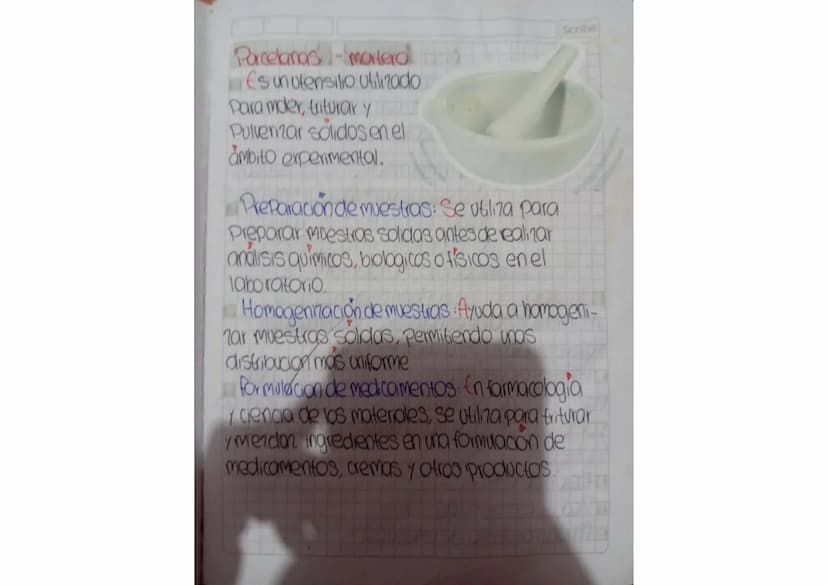 Scribe
Porcelanas - mortero
Es un utensilio utilizado
para moler, triturar y
pulverizar sólidos en el
ámbito experimental.
Preparación de muestras: Se utiliza para
preparar muestras solidas antes de realizar
análisis químicos, biologicos o físicos en el
laboratorio.
Homogenización de muestras: Ayuda a homogeni-
zar muestras sólidas, permitiendo unos
distribucion más uniforme
Formulacion de medicamentos: En farmacología
y ciencia de los materiales, se utiliza para triturar
y mezclar ingredientes en una formulación de
medicamentos, cremas y otros productos.